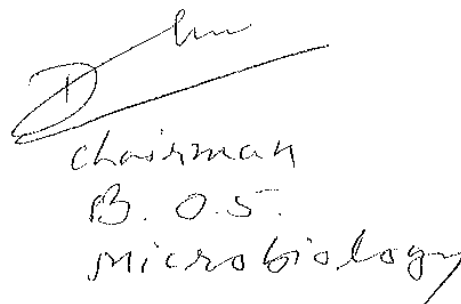 Chairman
B. O. S.
Microbiology